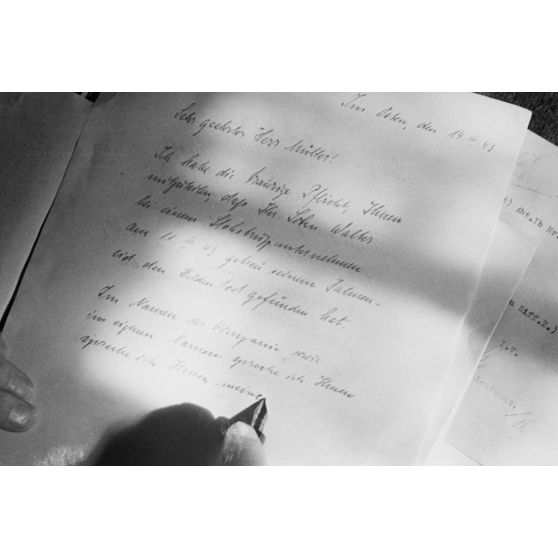 Im Osten, den 14. III. 43
Sehr geehrter Herr Müller!
Ich habe die traurige Pflicht, Ihnen
mitzuteilen, daß Ihr Sohn Walter
bei einem Stoßtruppunternehmen
am 11. III. 43 getreu seinem Fahnen-
eid den Heldentod gefunden hat.
Im Namen der Kompanie sowie
im eigenen Namen spreche ich Ihnen
spreche ich Ihnen meine
Abt.Ib Nr.